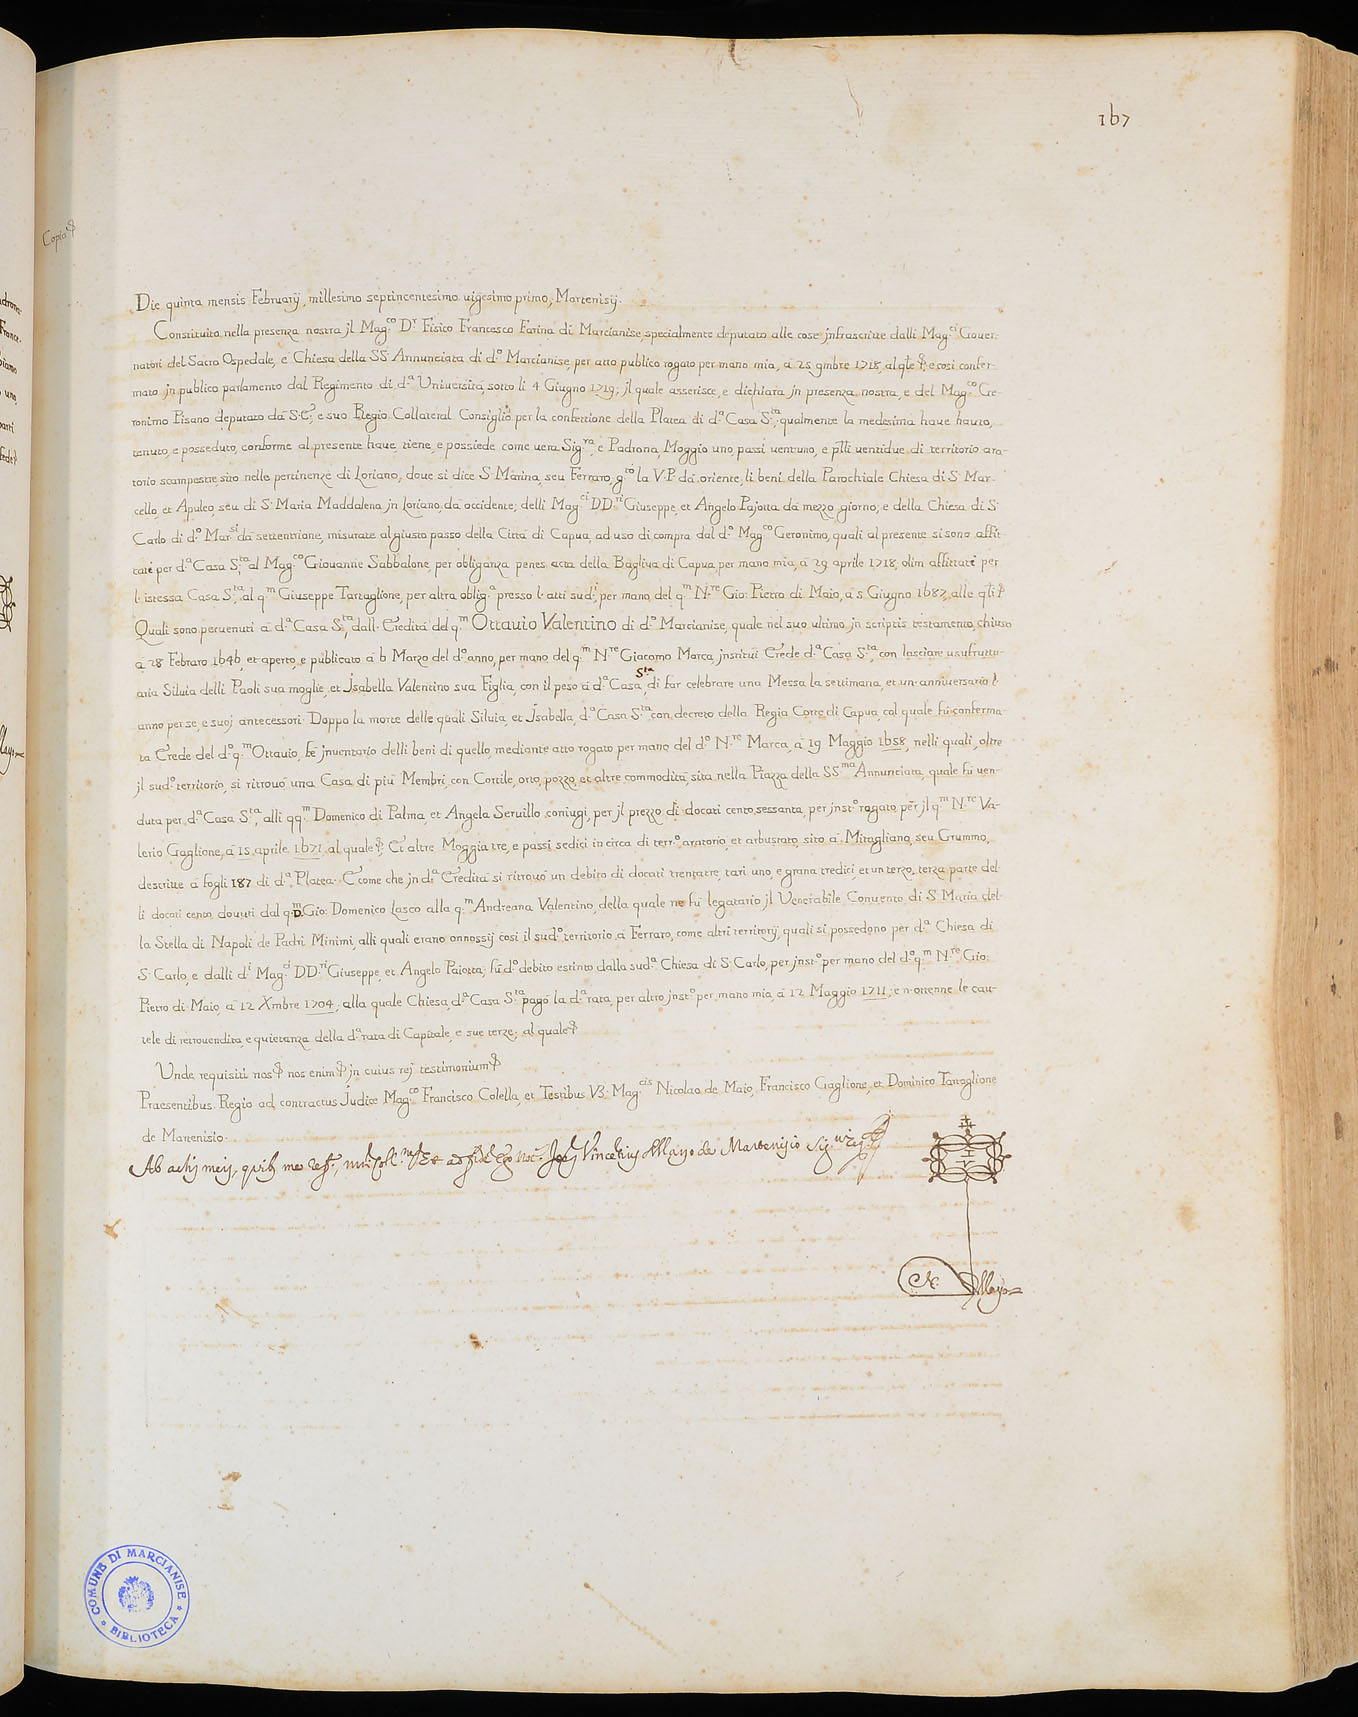 167
Copia
Die quinta mensis Februarij, millesimo septincentesimo uigesimo primo, Martenisij.
Constituito nella presenza nostra jl Mag.co D.r Fisico Francesco Farina di Marcianise, specialmente deputato alle cose jnfrascritte dalli Mag.ci Gouer-
natori del Sacro Ospedale, e Chiesa della SS. Annunciata di d.o Marcianise, per atto publico rogato per mano mia, à 25 9mbre 1718, al qle &; e così confer-
mato jn publico parlamento dal Regimento di d.a Uniuersità, sotto li 4 Giugno 1719; jl quale asserisce, e dichiara jn presenza nostra, e del Mag.co Ge-
ronimo Pisano deputato da S.E., e suo Regio Collateral Consiglio per la confettione della Platea di d.a Casa S.ta, qualmente la medesima haue hauto,
tenuto, e posseduto, conforme al presente haue, tiene, e possiede come uera Sig.ra, e Padrona, Moggio uno passi uentuno, e p̃lli uentidue di territorio ara-
torio scampestre, sito nelle pertinenze di Loriano, doue si dice S. Marina, seu Ferraro, g.to la V.P. da oriente, li beni della Parochiale Chiesa di S. Mar-
cello, et Apuleo, seu di S. Maria Maddalena jn Loriano, da occidente; delli Mag.ci DD.ri Giuseppe, et Angelo Pajotta da mezzo giorno; e della Chiesa di S.
Carlo di d.o Mar.si da settentrione, misurate al giusto passo della Città di Capua, ad uso di compra dal d.o Mag.co Geronimo, quali al presente si sono affit-
tati per d.a Casa S.ta al Mag.co Giouanne Sabbatone, per obliganza penes acta della Bagliua di Capua, per mano mia, à 29 aprile 1718, olim affittati per
l'istessa Casa S.ta, al q.m Giuseppe Tartaglione, per altra oblig.a presso l'atti sud.i, per mano del q.m N.re Gio: Pietro di Maio, à 5 Giugno 1687, alle qli &
Quali sono peruenuti à d.a Casa S.ta, dall'Eredità del q.m Ottauio Valentino di d.o Marcianise, quale nel suo ultimo jn scriptis testamento, chiuso
à 28 Febraro 1646, et aperto, e publicato à 6 Marzo del d.o anno, per mano del q.m N.re Giacomo Marca, jnstituì Erede d.a Casa S.ta, con lasciare usufruttu-
aria Siluia delli Paoli sua moglie, et Jsabella Valentino sua Figlia, con il peso à d.a Casa S.ta, di far celebrare una Messa la settimana, et un'anniuersario l'
anno per se, e suoj antecessori. Doppo la morte delle quali Siluia, et Jsabella, d.a Casa S.ta, con decreto della Regia Corte di Capua, col quale fù conferma-
ta Erede del d.o q.m Ottauio, fè jnuentario delli beni di quello, mediante atto rogato per mano del d.o N.re Marca, à 19 Maggio 1658, nelli quali, oltre
jl sud.o territorio, si ritrouò una Casa di più Membri, con Cortile, orto, pozzo, et altre commodità, sita nella Piazza della SS.ma Annunciata, quale fù uen-
duta per d.a Casa S.ta, alli qq.m Domenico di Palma, et Angela Seruillo coniugi, per jl prezzo di docati cento sessanta, per jnst.o rogato per jl q.m N.re Va-
lerio Gaglione, à 15 aprile 1671, al quale &; Et altre Moggia tre, e passi sedici in circa di terr.o aratorio, et arbustato, sito à Mitagliano, seu Grummo,
descritte à fogli 187 di d.a Platea. E come che jn d.a Eredità si ritrouò un debito di docati trentatre, tarì uno, e grana tredici, et un terzo, terza parte del-
li docati cento, douuti dal q.m D. Gio: Domenico Lasco alla q.m Andreana Valentino, della quale ne fù legatario jl Venerabile Conuento di S. Maria del-
la Stella di Napoli de Padri Minimi, alli quali erano onnossij così il sud.o territorio à Ferraro, come altri territorij, quali si possedono per d.a Chiesa di
S. Carlo, e dalli d.i Mag.ci DD.ri Giuseppe, et Angelo Paiotta; fù d.o debito estinto dalla sud.a Chiesa di S. Carlo, per jnst.o per mano del d.o q.m N.re Gio:
Pietro di Maio, à 12 Xmbre 1704, alla quale Chiesa, d.a Casa S.ta pagò la d.a rata, per altro jnst.o per mano mia, à 12 Maggio 1711; e n'ottenne le cau-
tele di retrouendita, e quietanza della d.a rata di Capitale, e sue terze; al quale &
Unde requisiti nos & nos enim & jn cuius rej testimonium &
Praesentibus Regio ad contractus Judice Mag.co Francisco Colella, et Testibus V3. Mag.cis Nicolao de Maio, Francisco Gaglione, et Dominico Tartaglione
de Martenisio.
Ab actis meis, quibus me Not. Vincentius Mayo de Martenisio
Mayo
COMUNE DI MARCIANISE
BIBLIOTECA